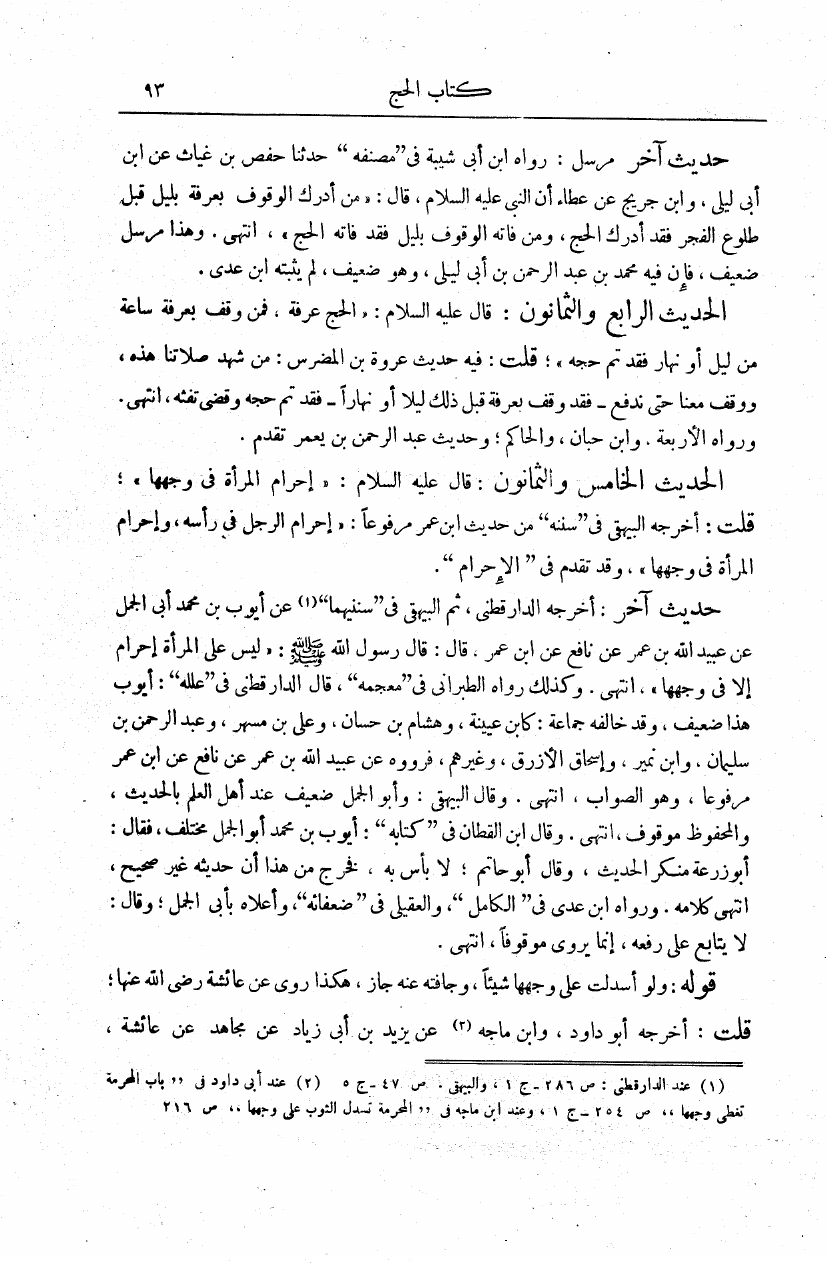 كتاب الحج ٩٣
حديث آخر مرسل : رواه ابن أبى شيبة فى ”مصنفه“ حدثنا حفص بن غياث عن ابن
أبى ليلى ، وابن جريج عن عطاء أن النبى عليه السلام ، قال : « من أدرك الوقوف بعرفة بليل قبل
طلوع الفجر فقد أدرك الحج ، ومن فاته الوقوف بليل فقد فاته الحج » ، انتهى . وهذا مرسل
ضعيف ، فإن فيه محمد بن عبد الرحمن بن أبى ليلى ، وهو ضعيف ، لم يثبته ابن عدى .
الحديث الرابع والثمانون : قال عليه السلام : « الحج عرفة ، فمن وقف بعرفة ساعة
من ليل أو نهار فقد تم حجه » ؛ قلت : فيه حديث عروة بن المضرس : من شهد صلاتنا هذه ،
ووقف معنا حتى ندفع ــ فقد وقف بعرفة قبل ذلك ليلا أو نهاراً ــ فقد تم حجه وقضى تفثه ، انتهى .
ورواه الأربعة . وابن حبان ، والحاكم ؛ وحديث عبد الرحمن بن يعمر تقدم .
الحديث الخامس والثمانون : قال عليه السلام : « إحرام المرأة فى وجهها » ؛
قلت : أخرجه البيهقى فى ”سننه“ من حديث ابن عمر مرفوعاً : « إحرام الرجل فى رأسه ، وإحرام
المرأة فى وجهها » ، وقد تقدم فى ” الإحرام “ .
حديث آخر : أخرجه الدارقطنى ، ثم البيهقى فى ”سننيهما“ (١) عن أيوب بن محمد أبى الجمل
عن عبيد الله بن عمر عن نافع عن ابن عمر . قال : قال رسول الله ﷺ : « ليس على المرأة إحرام
إلا فى وجهها » ، انتهى . وكذلك رواه الطبرانى فى ”معجمه“ ، قال الدارقطنى فى ”علله“ : أيوب
هذا ضعيف ، وقد خالفه جماعة : كابن عيينة ، وهشام بن حسان ، وعلى بن مسهر ، وعبد الرحمن بن
سليمان . وابن نمير ، وإسحاق الأزرق ، وغيرهم ، فرووه عن عبيد الله بن عمر عن نافع عن ابن عمر
مرفوعا ، وهو الصواب ، انتهى . وقال البيهقى : وأبو الجمل ضعيف عند أهل العلم بالحديث ،
والمحفوظ موقوف ، انتهى . وقال ابن القطان فى ” كتابه “ : أيوب بن محمد أبو الجمل مختلف ، فقال :
أبو زرعة منكر الحديث ، وقال أبو حاتم ؛ لا بأس به ، فخرج من هذا أن حديثه غير صحيح ،
انتهى كلامه . ورواه ابن عدى فى ” الكامل “ ، والعقيلى فى ” ضعفائه “ ، وأعلاه بأبى الجمل ؛ وقال :
لا يتابع على رفعه ، إنما يروى موقوفاً ، انتهى .
قوله : ولو أسدلت على وجهها شيئاً ، وجافته عنه جاز ، هكذا روى عن عائشة رضى الله عنها ؛
قلت : أخرجه أبو داود ، وابن ماجه (٢) عن يزيد بن أبى زياد عن مجاهد عن عائشة ،
(١) عند الدارقطنى : ص ٢٨٦ ــ ج ١ ، والبيهقى . ص ٤٧ ــ ج ٥ (٢) عند أبى داود فى ,, باب المحرمة
تغطى وجهها ،، ص ٢٥٤ ــ ج ١ ، وعند ابن ماجه فى ,, المحرمة تسدل الثوب على وجهها ،، ص ٢١٦